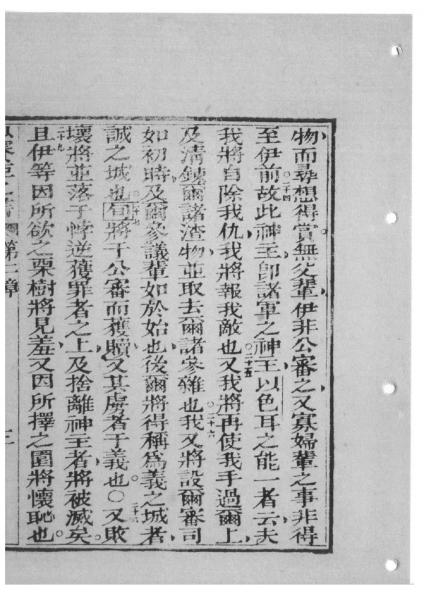 物而尋想得賞無父輩伊非公審之又寡婦輩之事非得
二十四
至伊前故此神主即諸軍之神主以色耳之能一者云夫
我將自除我仇我將報我敵也又我將再使我手過爾上
二十五
及清鏈爾諸渣物並取去爾諸參雜也我又將設爾審司
二十六
如初時及爾參議輩如於始也後爾將得稱為義之城者
誠之城也旬將于公審而獲贖又其虜者于義也○又敗
壞將並落于悖逆獲罪者之上及捨離神主者將被滅矣
二十九
且伊等因所欲之栗樹將見羞又因所擇之園將懷恥也
第一章
三